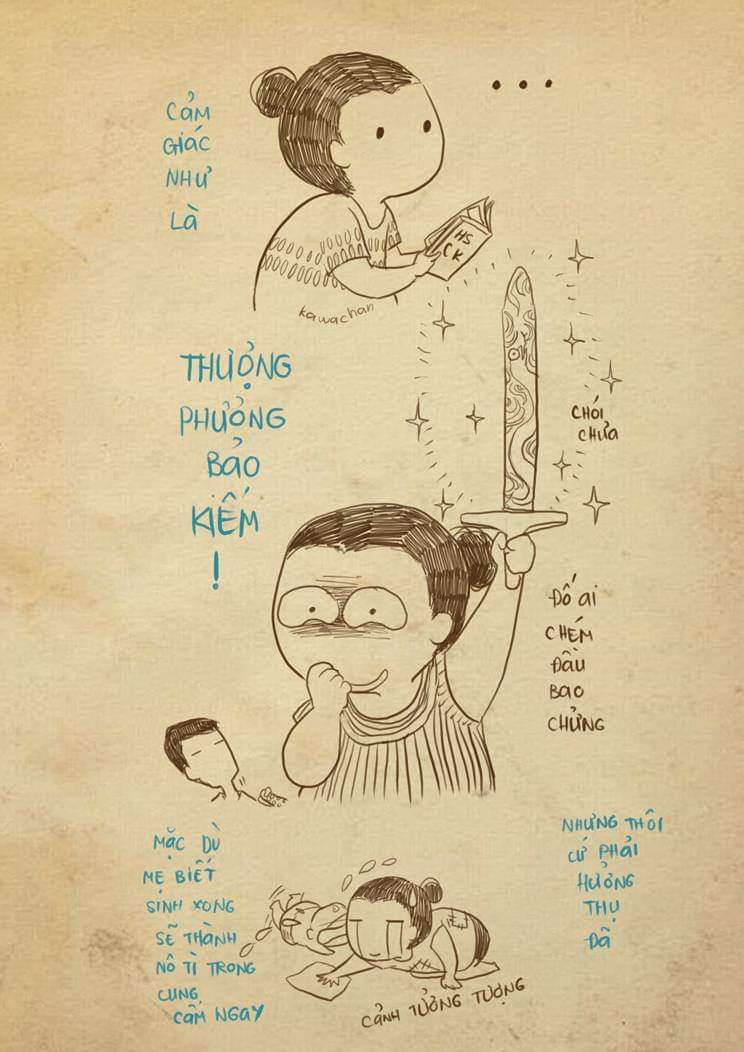 CẢM
GIÁC
NHƯ
LÀ
...
HS
CK
kawachan
THƯỢNG
PHƯỞNG
BẢO
KIẾM
!
CHÓI
CHƯA
ĐỐ AI
CHÉM
ĐẦU
BAO
CHỬNG
MẶC DÙ
MẸ BIẾT
SINH XONG
SẼ THÀNH
NÔ TÌ TRONG
CUNG
CẤM NGAY
NHƯNG THÔI
CỨ PHẢI
HƯỞNG
THỤ
ĐÃ
CẢNH TƯỞNG TƯỢNG